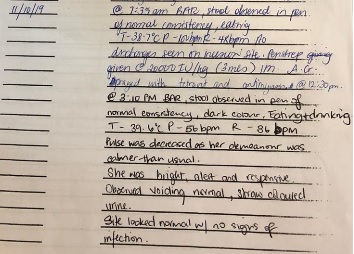 11/10/19
@ 7:35am BAR, stool observed in pen
of normal consistency, eating
T-38.7°C P-10 bpm R-48bpm No
discharges seen on incision site. Penstrep
given @ 20000 IU/kg (3mls) IM A.G.
sprayed with @ 12:30pm.
@ 3:10 PM BAR, stool observed in pen of
normal consistency, dark colour. Eating+drinking
T- 39.6°C P- 56bpm R - 86bpm
Pulse was decreased as her demeanour was
calmer than usual.
She was bright, alert and responsive
Observed voiding normal, straw coloured
urine.
Site looked normal w/ no signs of
infection.